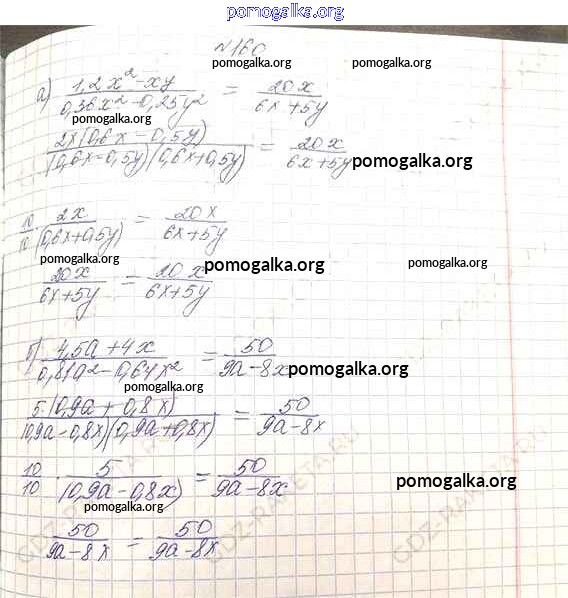 pomogalka.org
N160
pomogalka.org pomogalka.org
а) (1,2x² - xy)/(0,36x² - 0,25y²) = 20x/(6x + 5y)
pomogalka.org
2x(0,6x - 0,5y)/((0,6x - 0,5y)(0,6x + 0,5y)) = 20x/(6x + 5y)
pomogalka.org
10/10 · 2x/(0,6x + 0,5y) = 20x/(6x + 5y)
pomogalka.org pomogalka.org pomogalka.org
20x/(6x + 5y) = 20x/(6x + 5y)
б) (4,5a + 4x)/(0,81a² - 0,64x²) = 50/(9a - 8x)
pomogalka.org
pomogalka.org
5(0,9a + 0,8x)/((0,9a - 0,8x)(0,9a + 0,8x)) = 50/(9a - 8x)
10/10 · 5/(0,9a - 0,8x) = 50/(9a - 8x)
pomogalka.org
pomogalka.org
50/(9a - 8x) = 50/(9a - 8x)
GDZ-RAKETA.RU
GDZ-RAKETA.RU